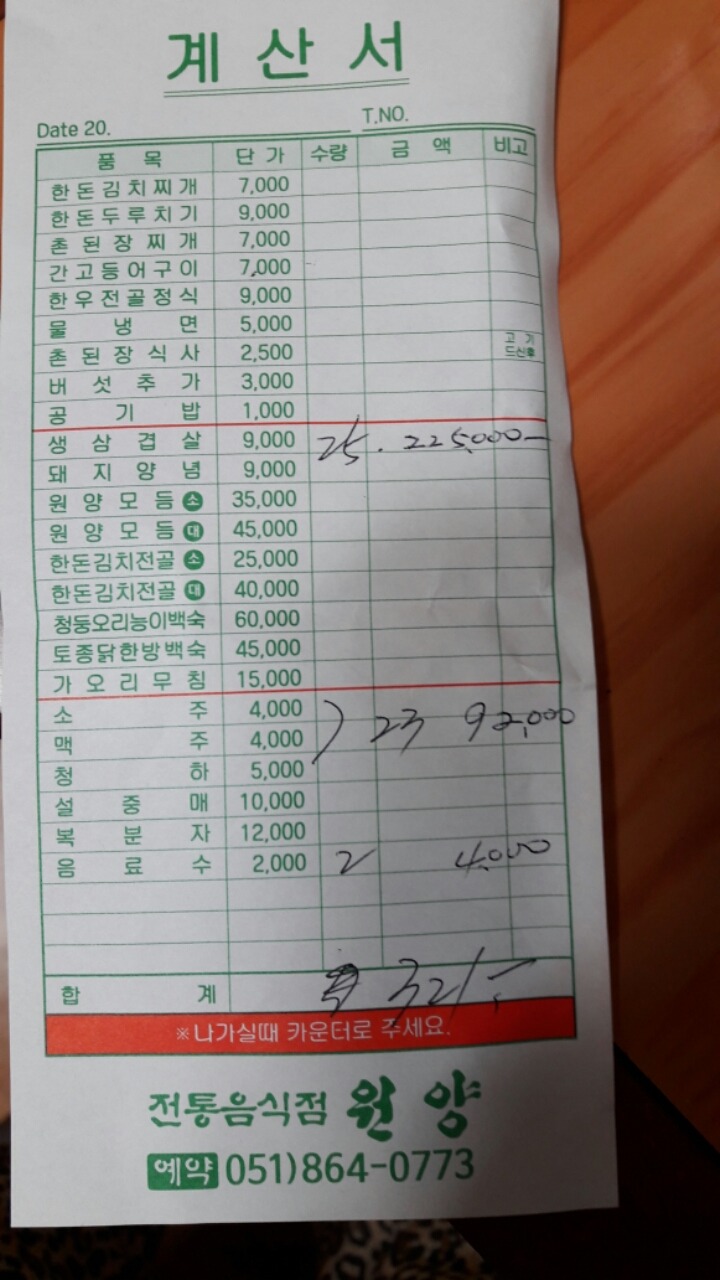 계산서
Date 20. T.NO.
품목 단가 수량 금액 비고
한돈김치찌개 7,000
한돈두루치기 9,000
촌된장찌개 7,000
간고등어구이 7,000
한우전골정식 9,000
물냉면 5,000
촌된장식사 2,500 고기드신후
버섯추가 3,000
공기밥 1,000
생삼겹살 9,000 25. 225,000-
돼지양념 9,000
원양모듬 소 35,000
원양모듬 대 45,000
한돈김치전골 소 25,000
한돈김치전골 대 40,000
청둥오리능이백숙 60,000
토종닭한방백숙 45,000
가오리무침 15,000
소주 4,000
맥주 4,000 ) 23 92,000
청하 5,000
설중매 10,000
복분자 12,000
음료수 2,000 2 4,000
합계 321,-
※나가실때 카운터로 주세요.
전통음식점 원양
예약 051)864-0773